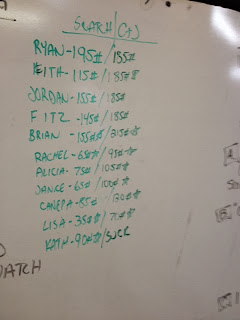 SNATCH/C+J
RYAN-195#/
KEITH-115#/185#
JORDAN-155#/185#
FITZ-145#/185#
BRIAN-155#/215#
RACHEL-65#/95#
ALICIA-75#/105#
JANCE-65#/100#
CANEPA-85#/130#
LISA-35#/70#
KATH-90#/SUCK
ATCH